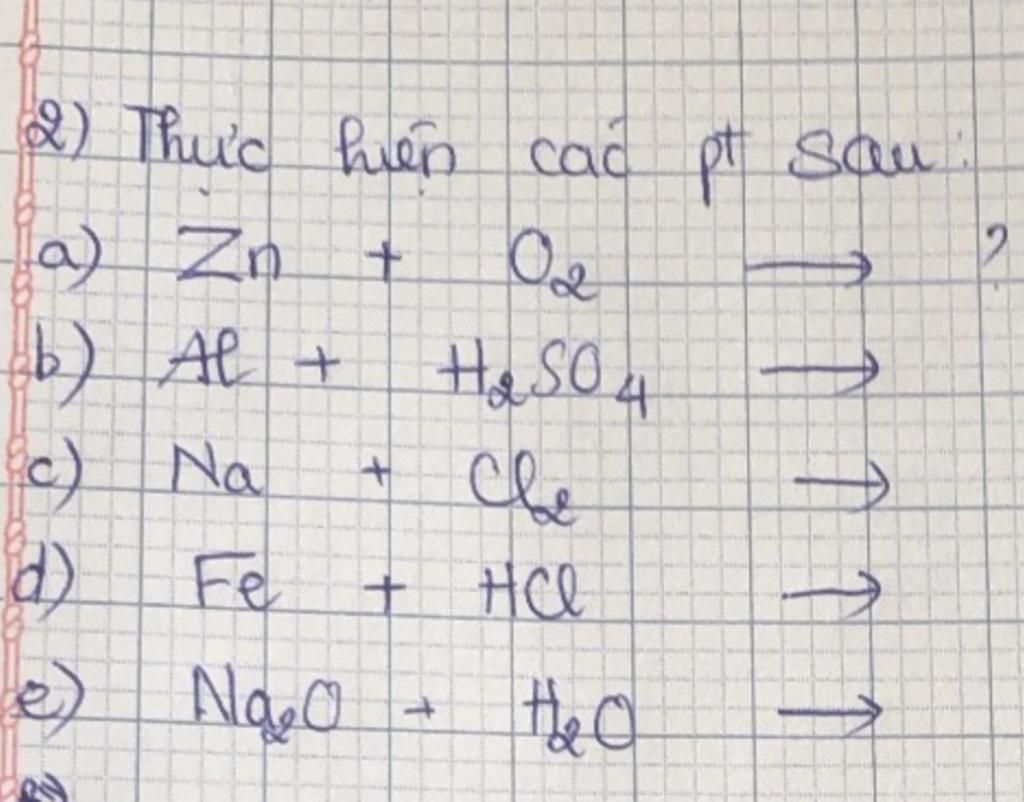 2) Thực hiện các pt sau:
a) Zn + O₂ → ?
b) Al + H₂SO₄ →
c) Na + Cl₂ →
d) Fe + HCl →
e) Na₂O + H₂O →